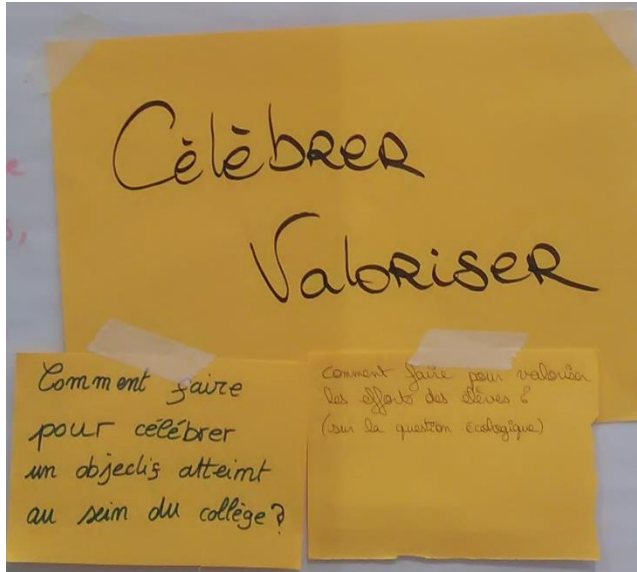 Célèbrer
Valoriser
Comment faire
pour célébrer
un objectif atteint
au sein du collège ?
Comment faire pour valoriser
les efforts des élèves ?
(sur la question écologique)